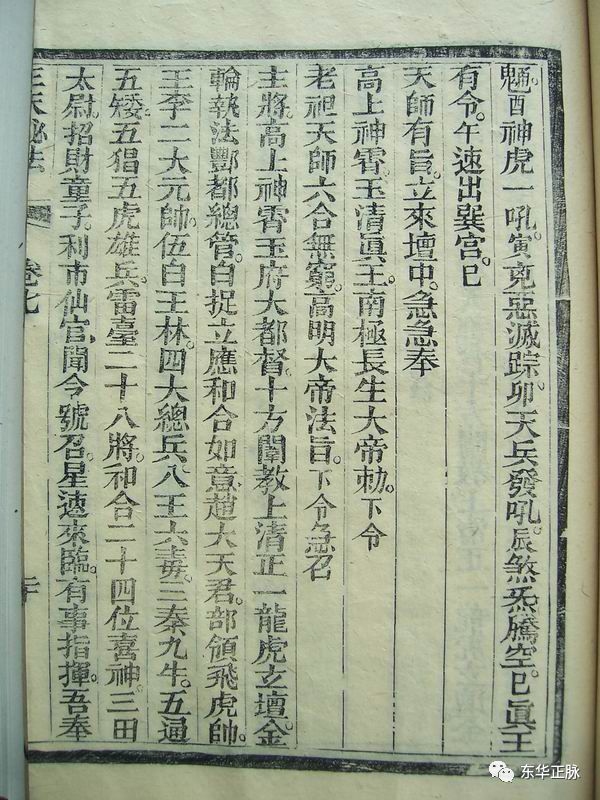 魎。酉神虎一吼。寅兇惡滅踪。卯天兵發吼。辰煞炁騰空。巳眞王
有令。午速出巽宮。巳
天師有旨。立來壇中。急急奉
高上神霄。玉清眞王南極長生大帝勅。下令
老祀天師六合無窮。高明大帝法旨。下令急召
主將高上神霄玉府大都督。十方闡教上清正一龍虎玄壇。金
輪執法酆都總管。自捉立應和合如意。趙大天君。部領飛虎帥。
王李二大元帥。伍白王林。四大總兵。八王六毒。三奉。九牛。五逼
五矮。五猖五虎雄兵雷臺二十八將。和合二十四位喜神三田
太尉。招財童子。利市仙官。聞今號召。星速來臨。有事指揮。吾奉
天秘法 卷七
东华正脉